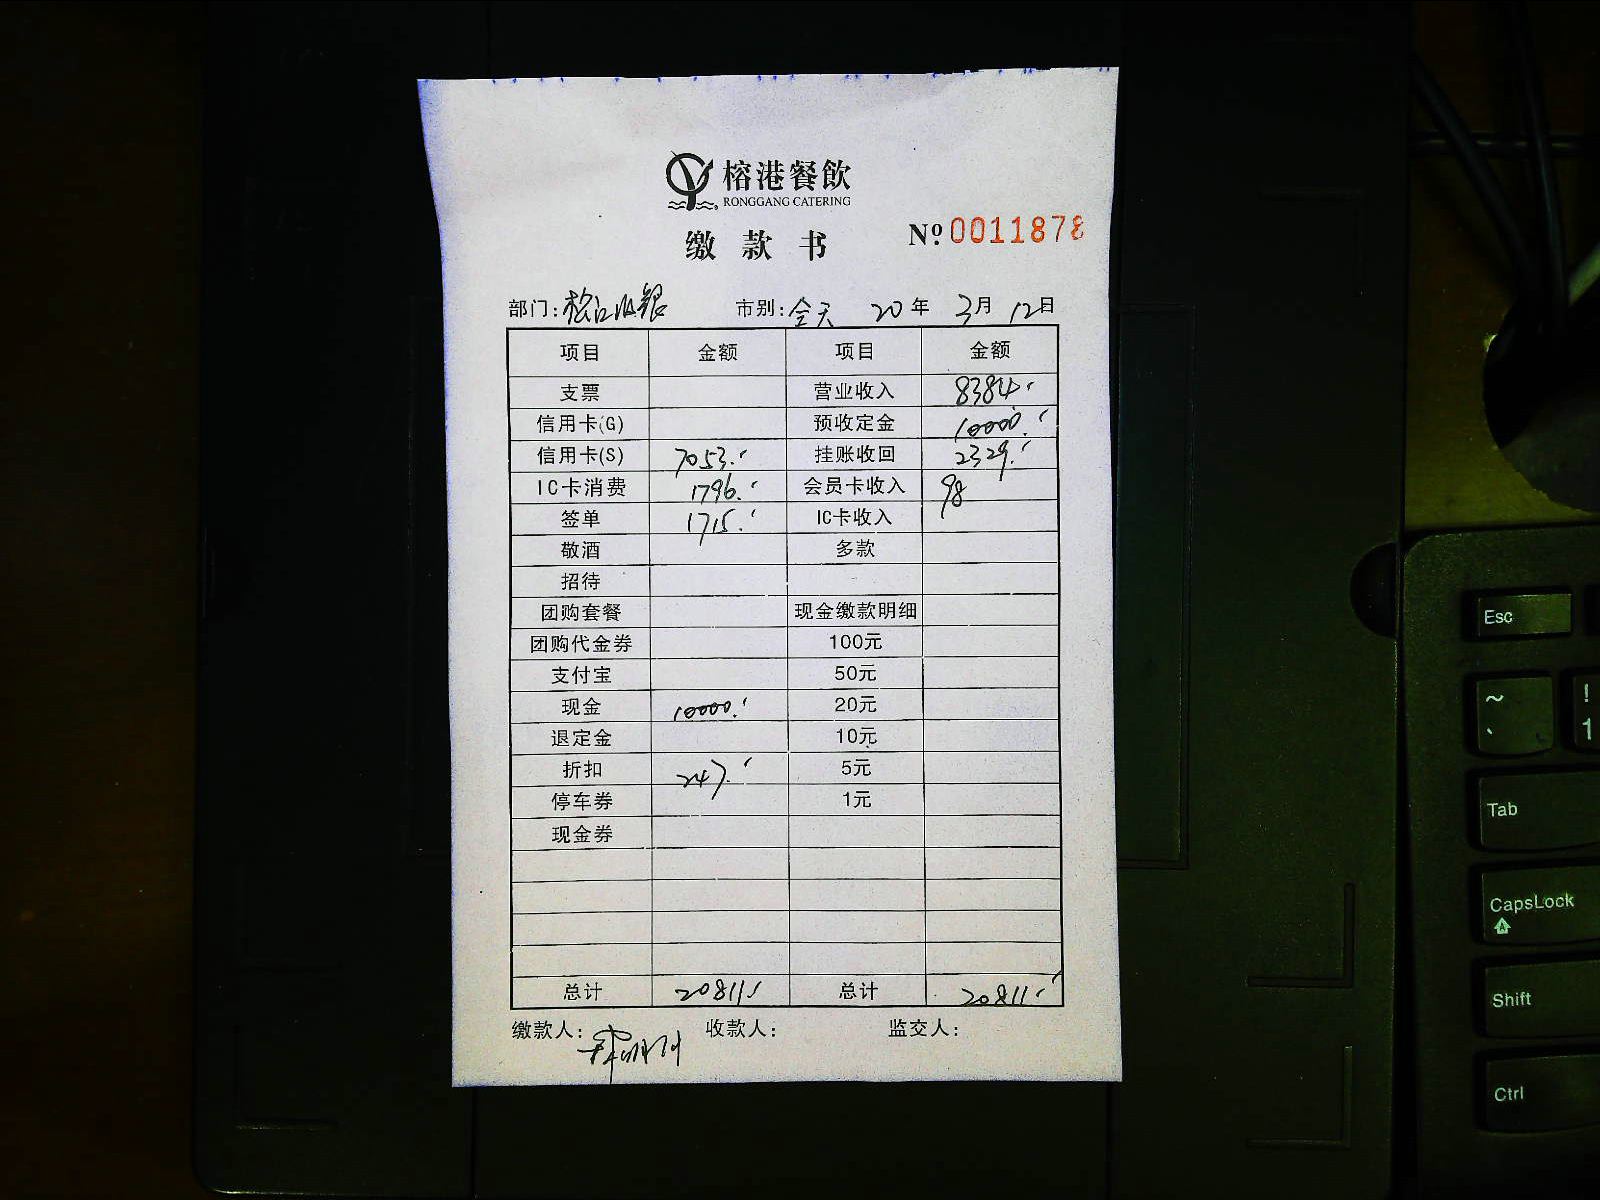 榕港餐飲
RONGGANG CATERING
缴款书
Nº 0011878
部门: 松江收银 市别: 全天 20年 3月 12日
项目 金额 项目 金额
支票 营业收入 8384.
信用卡(G) 预收定金 10000.
信用卡(S) 7053. 挂账收回 2329.
IC卡消费 1796. 会员卡收入 98
签单 1715. IC卡收入
敬酒 多款
招待
团购套餐 现金缴款明细
团购代金券 100元
支付宝 50元
现金 10000. 20元
退定金 10元
折扣 247. 5元
停车券 1元
现金券
总计 20811 总计 20811.
缴款人: 收款人: 监交人:
Esc
~ !
` 1
Tab
CapsLock
Shift
Ctrl